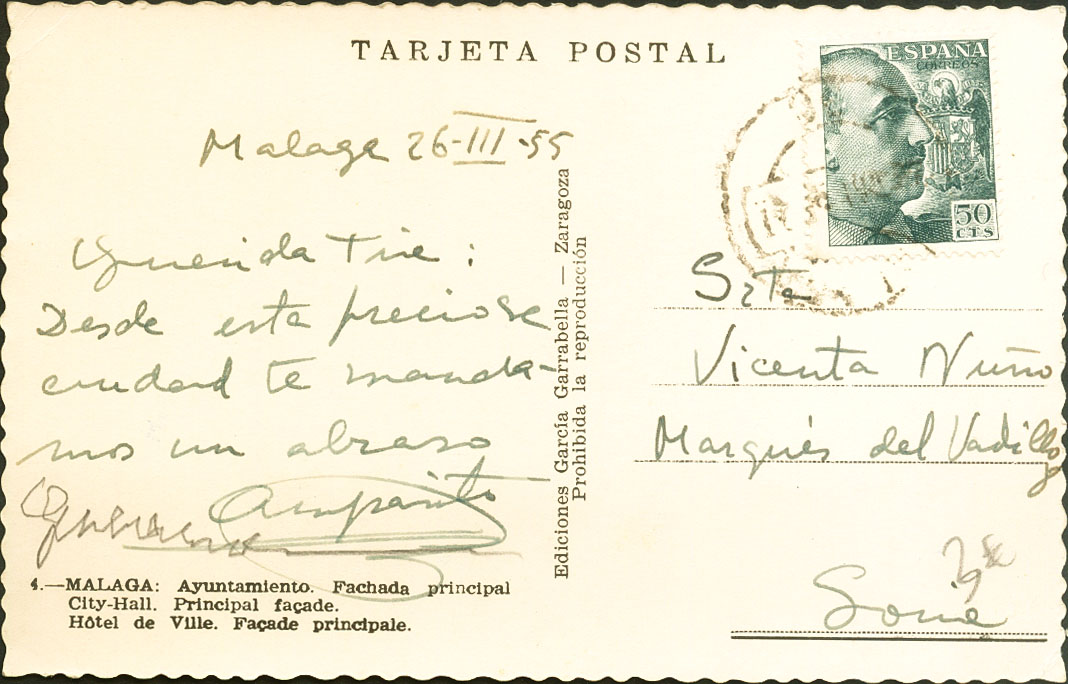 TARJETA POSTAL
ESPAÑA
CORREOS
50
CTS
Malaga 26-III-55
Querida Tine:
Desde esta preciosa
ciudad te manda-
mos un abraso
Amparito
4.—MALAGA: Ayuntamiento. Fachada principal
City-Hall. Principal façade.
Hôtel de Ville. Façade principale.
Ediciones García Garrabella — Zaragoza
Prohibida la reproducción
Srta
Vicenta Nuño
Marqués del Vadillo
Soria